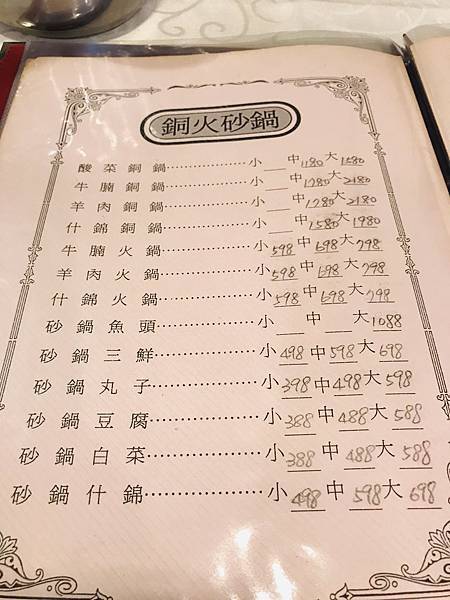 銅火砂鍋
酸菜銅鍋………………小__中1180大1580
牛腩銅鍋………………小__中1780大2180
羊肉銅鍋………………小__中1780大2180
什錦銅鍋………………小__中1580大1980
牛腩火鍋………………小598中698大798
羊肉火鍋………………小598中698大798
什錦火鍋………………小598中698大798
砂鍋魚頭………………小__中__大1088
砂鍋三鮮………………小498中598大698
砂鍋丸子………………小398中498大598
砂鍋豆腐………………小388中488大588
砂鍋白菜………………小388中488大588
砂鍋什錦………………小498中598大698